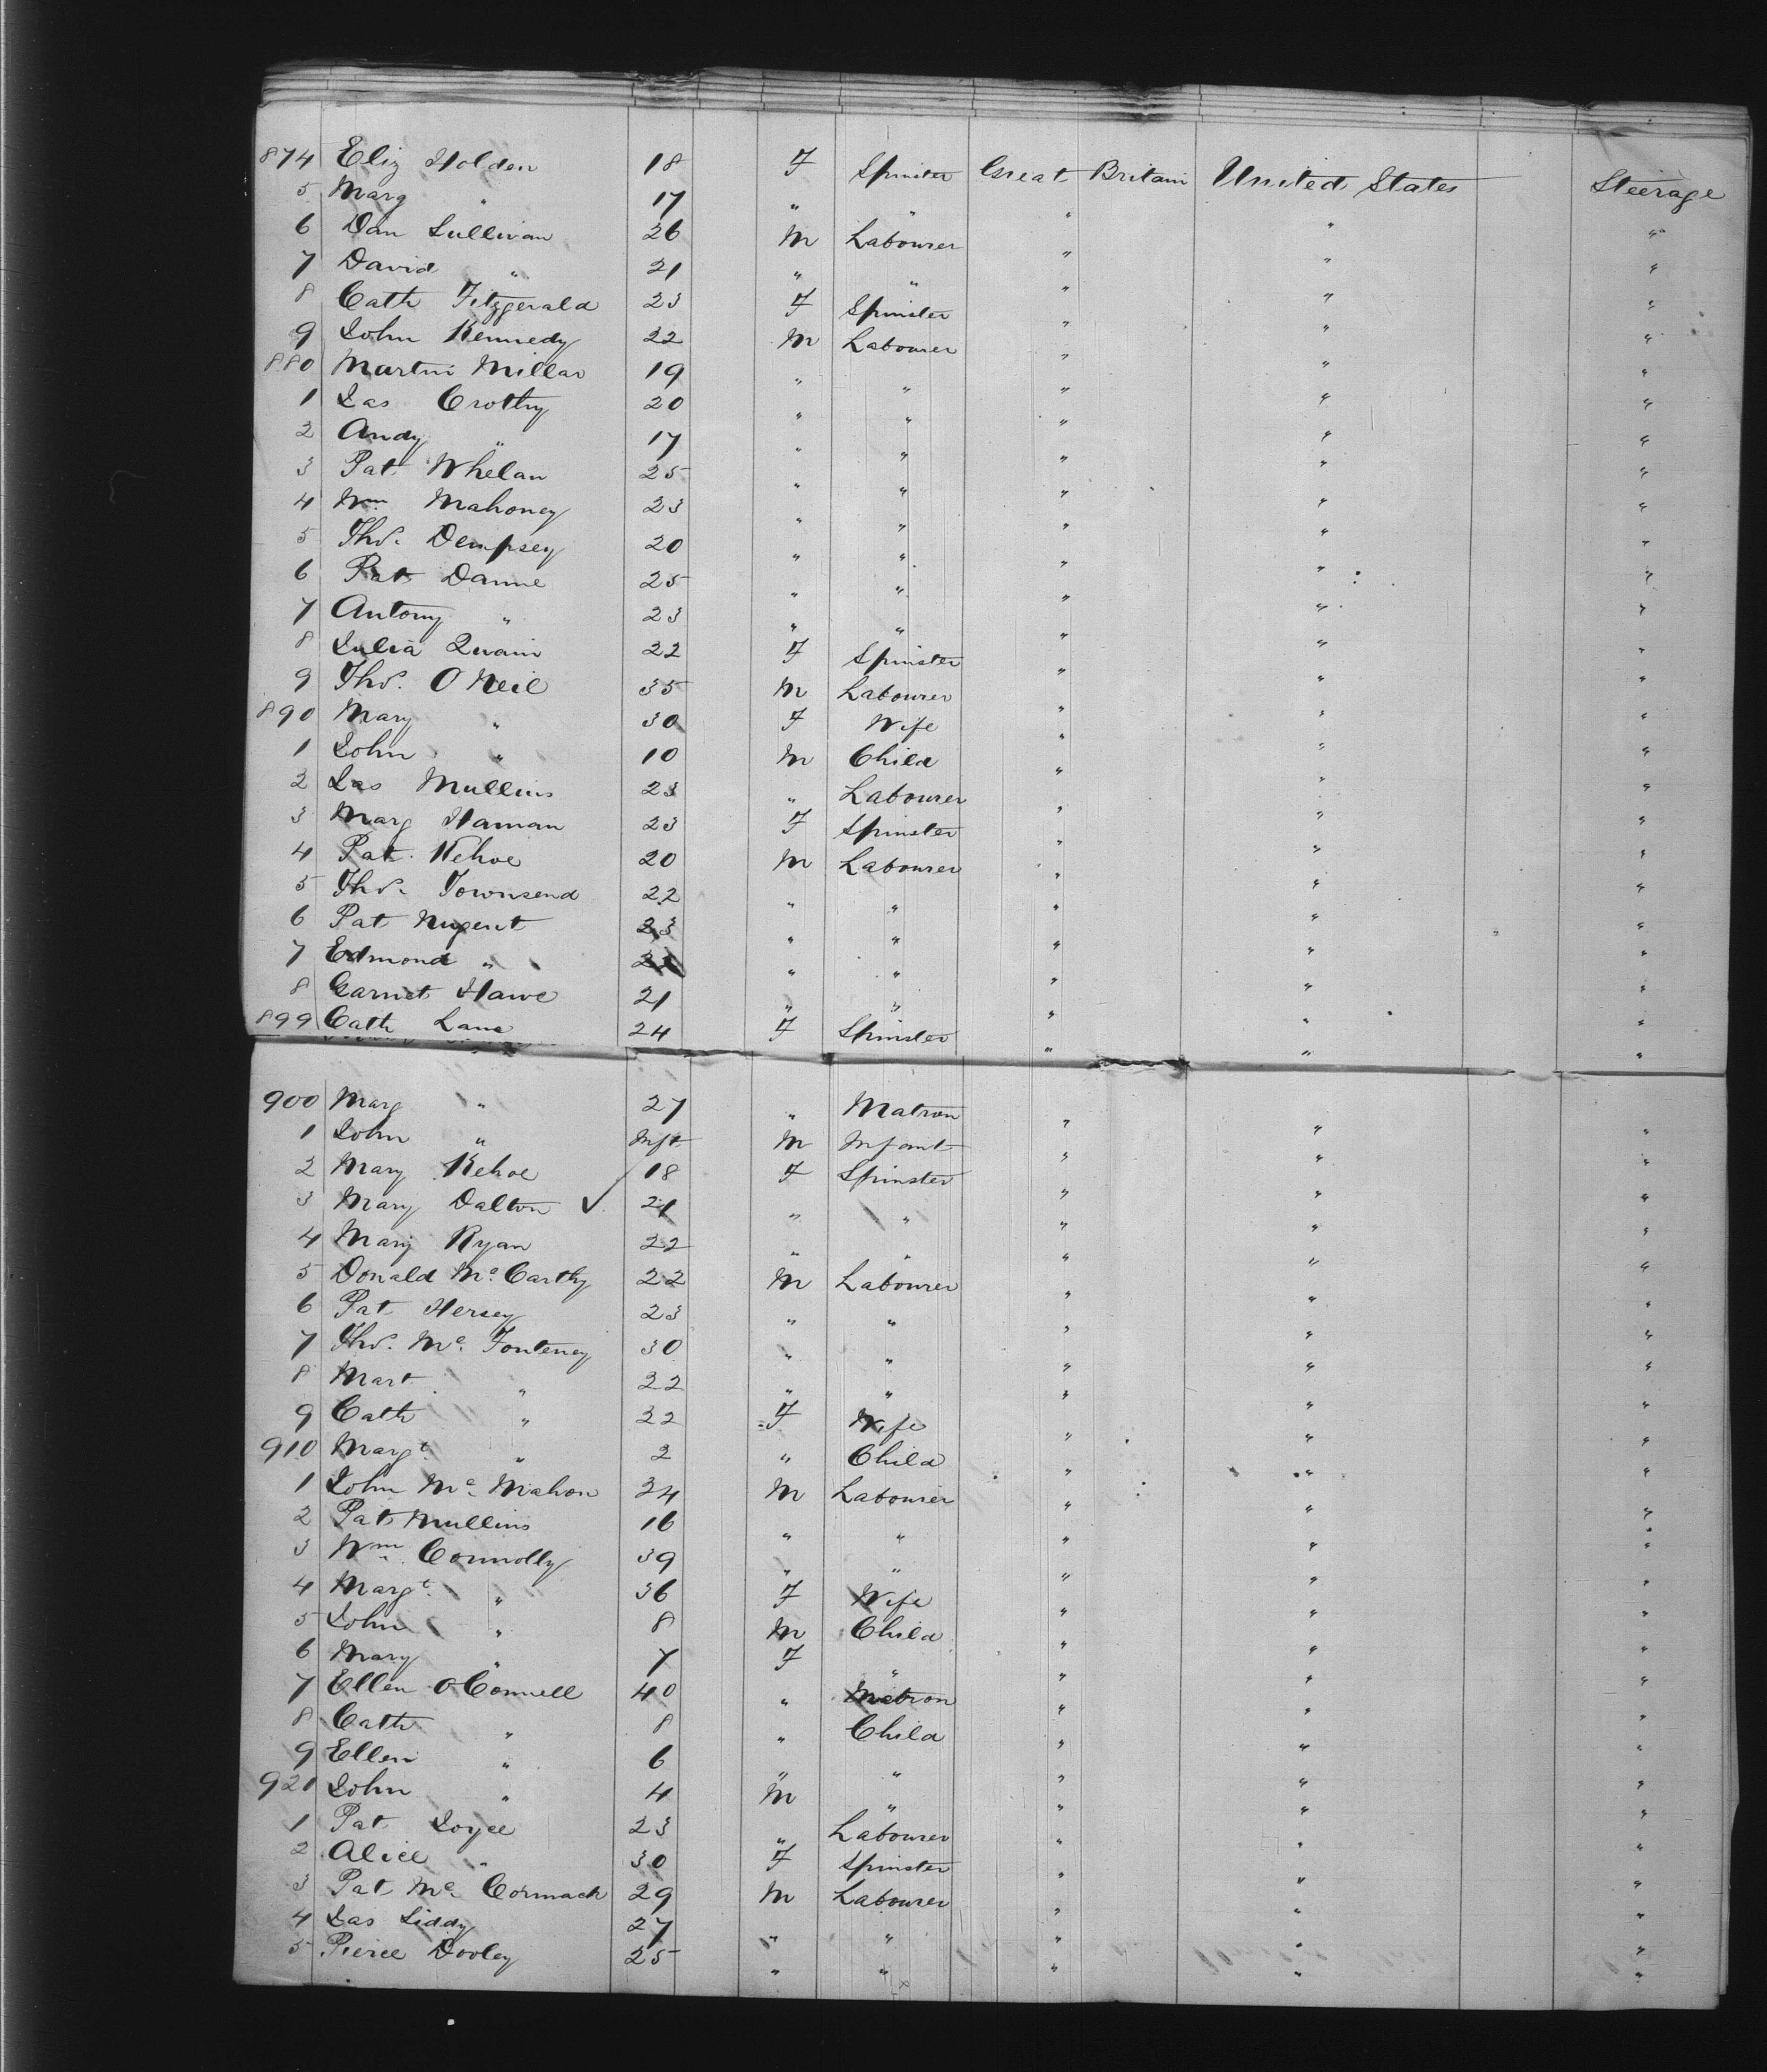 874 Eliz Holden 18 F Spinster Great Britain United States Steerage
5 Marg " 17 " " " " "
6 Dan Sullivan 26 M Labourer " " "
7 David " 21 " " " " "
8 Cath Fitzgerald 23 F Spinster " " "
9 John Kennedy 22 M Labourer " " "
880 Martin Millar 19 " " " " "
1 Jas Crothy 20 " " " " "
2 Andy " 17 " " " " "
3 Pat Whelan 25 " " " " "
4 Wm Mahoney 23 " " " " "
5 Thos. Dempsey 20 " " " " "
6 Pat Danne 25 " " " " "
7 Antony " 23 " " " " "
8 Julia Quain 22 F Spinster " " "
9 Thos. O Neil 35 M Labourer " " "
890 Mary " 30 F Wife " " "
1 John " 10 M Child " " "
2 Jas Mullins 23 " Labourer " " "
3 Marg Hanan 23 F Spinster " " "
4 Pat. Kehoe 20 M Labourer " " "
5 Thos. Townsend 22 " " " " "
6 Pat Nugent 23 " " " " "
7 Edmond " " " " " "
8 Garnet Hawe 21 " " " " "
899 Cath Lane 24 F Spinster " " "
900 Marg " 27 " Matron " " "
1 John " Inft M Infant " " "
2 Mary Kehoe 18 F Spinster " " "
3 Mary Dalton ✓ 21 " " " " "
4 Mary Ryan 22 " " " " "
5 Donald Mc Carthy 22 M Labourer " " "
6 Pat Hersey 23 " " " " "
7 Thos. Mc Fonteney 30 " " " " "
8 Mart " 22 " " " " "
9 Cath " 22 F Wife " " "
910 Margt " 2 " Child " " "
1 John Mc Mahon 24 M Labourer " " "
2 Pat Mullins 16 " " " " "
3 Wm Connolly 39 " " " " "
4 Margt " 36 F Wife " " "
5 John " 8 M Child " " "
6 Mary " 7 F " " " "
7 Ellen O Connell 40 " Matron " " "
8 Cath " 8 " Child " " "
9 Ellen " 6 " " " " "
921 John " 4 M " " " "
1 Pat Joyce 23 " Labourer " " "
2 Alice " 30 F Spinster " " "
3 Pat Mc Cormack 29 M Labourer " " "
4 Jas Liddy 27 " " " " "
5 Pierce Dooley 25 " " " " "